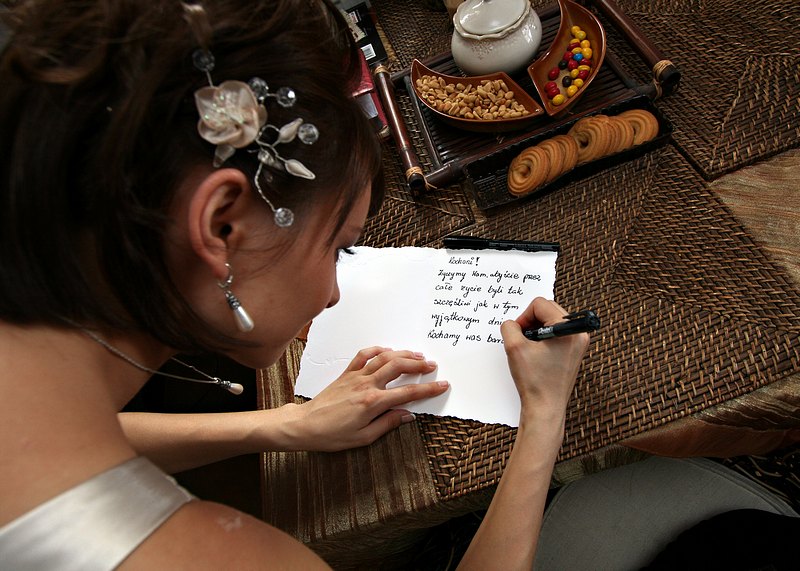 Kochani!
Życzymy Wam, abyście przez
całe życie byli tak
szczęśliwi jak w tym
wyjątkowym dni
Kochamy was bar